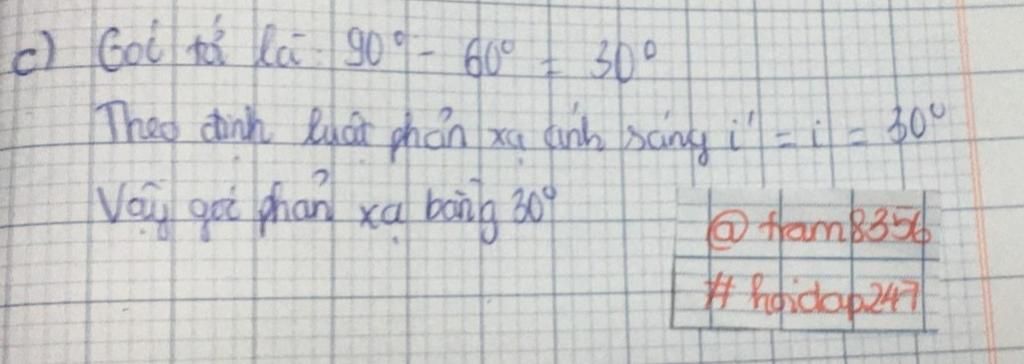 c) Gói tố là: 90° - 60° = 30°
Theo định luật phản xạ ánh sáng i' = i = 30°
Vậy gói phản xạ bằng 30°
@tram8356
#hoidap247